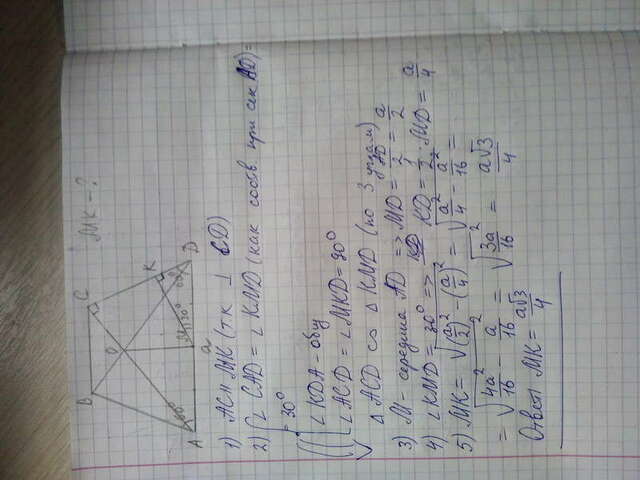 МК - ?
B
C
O
K
A
M
D
a
30°
30°
60°
1) АС ∥ МК (т.к. ⊥ CD)
2) ∠ CAD = ∠ KMD (как соотв. при сек AD) =
= 30°
∠ KDA - общ
∠ ACD = ∠ MKD = 90°
△ ACD ∽ △ KMD (по 3 углам)
3) М - середина AD => MD = AD/2 = a/2
4) ∠ KMD = 30° => KD = 1/2 · MD = a/4
5) MK = √((a/2)² - (a/4)²) = √(a²/4 - a²/16) =
= √(4a²/16 - a²/16) = √(3a²/16) = a√3/4
Ответ: МК = a√3/4